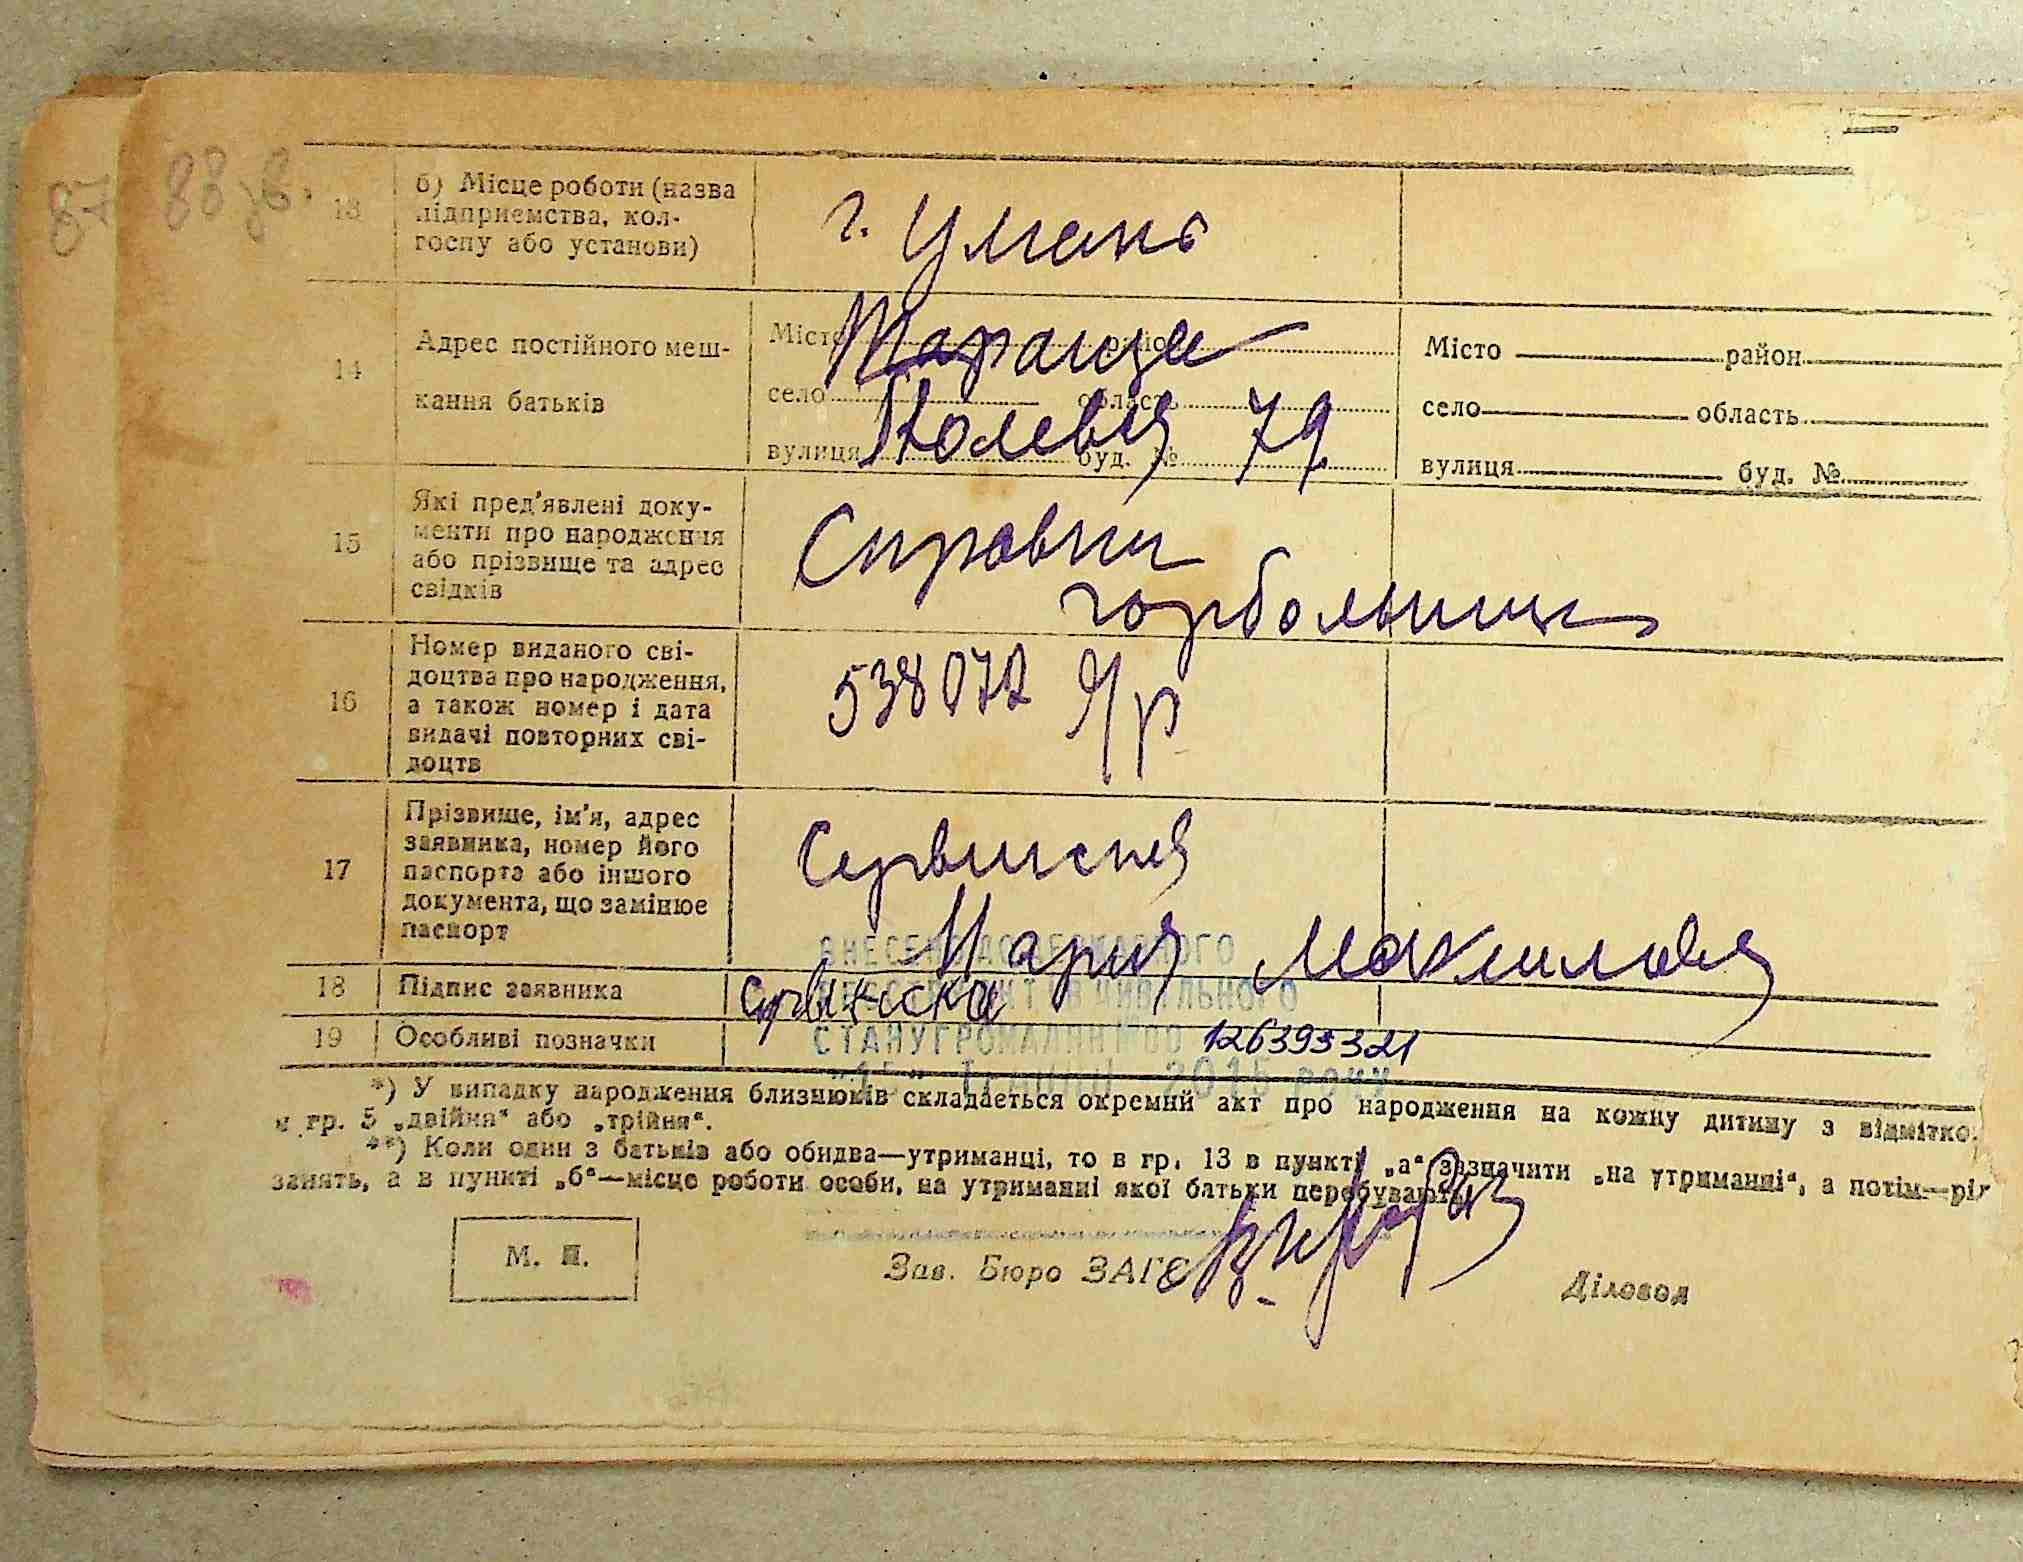 87 88 зв.
13
б) Місце роботи (назва
підприємства, кол-
госпу або установи)
г. Умань
14
Адрес постійного меш-
кання батьків
Місто район
село область
вулиця буд. №
Таращa
Полевая 79
Місто район
село область
вулиця буд. №
15
Які пред'явлені доку-
менти про народження
або прізвище та адрес
свідків
Справки
горбольницы
16
Номер виданого сві-
доцтва про народження,
а також номер і дата
видачі повторних сві-
доцтв
538072
17
Прізвище, ім'я, адрес
заявника, номер його
паспорта або іншого
документа, що замінює
паспорт
Мария
18
Підпис заявника
19
Особливі позначки
ВНЕСЕНО ДО ДЕРЖАВНОГО
РЕЄСТРУ АКТІВ ЦИВІЛЬНОГО
СТАНУ ГРОМАДЯН №00 126393321
"15" 2015 року
*) У випадку народження близнюків складається окремий акт про народження на кожну дитину з відмітко
в гр. 5 „двійня“ або „трійня“.
**) Коли один з батьків або обидва—утриманці, то в гр. 13 в пункті „а“ зазначити „на утриманні“, а потім—рід
занять, а в пункті „б“—місце роботи особи, на утриманні якої батьки перебувають.
М. П.
Зав. Бюро ЗАГС
Діловод